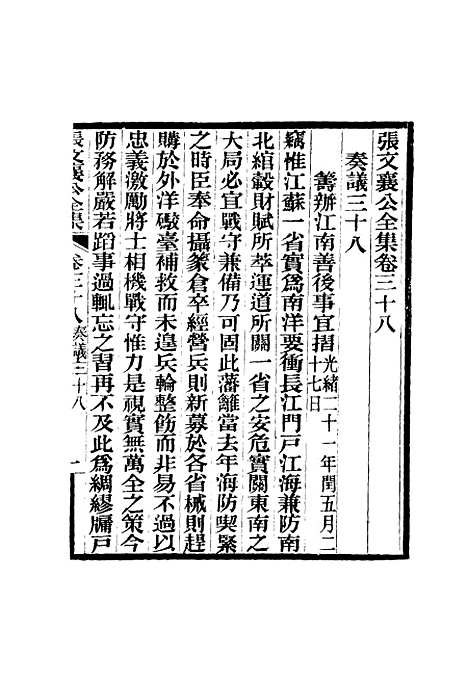 張文襄公全集卷三十八
奏議三十八
善辦江南善後事宜摺光緒二十一年閏五月二
十七日
竊惟江蘇一省實爲南洋要衝長江門戶江海兼防南
北綰轂財賦所萃運道所關一省之安危實關東南之
大局必宜戰守兼備乃可固此藩籬當去年海防喫緊
之時臣奉命攝篆倉卒經營兵則新募於各省械則趕
購於外洋礮臺補救而未遑兵輪整飭而非易不過以
忠義激勵將士相機戰守惟力是視實無萬全之策今
防務解嚴若蹈事過輒忘之習再不及此爲綢繆牖戶
張文襄公全集 卷三十八 奏議三十八 一